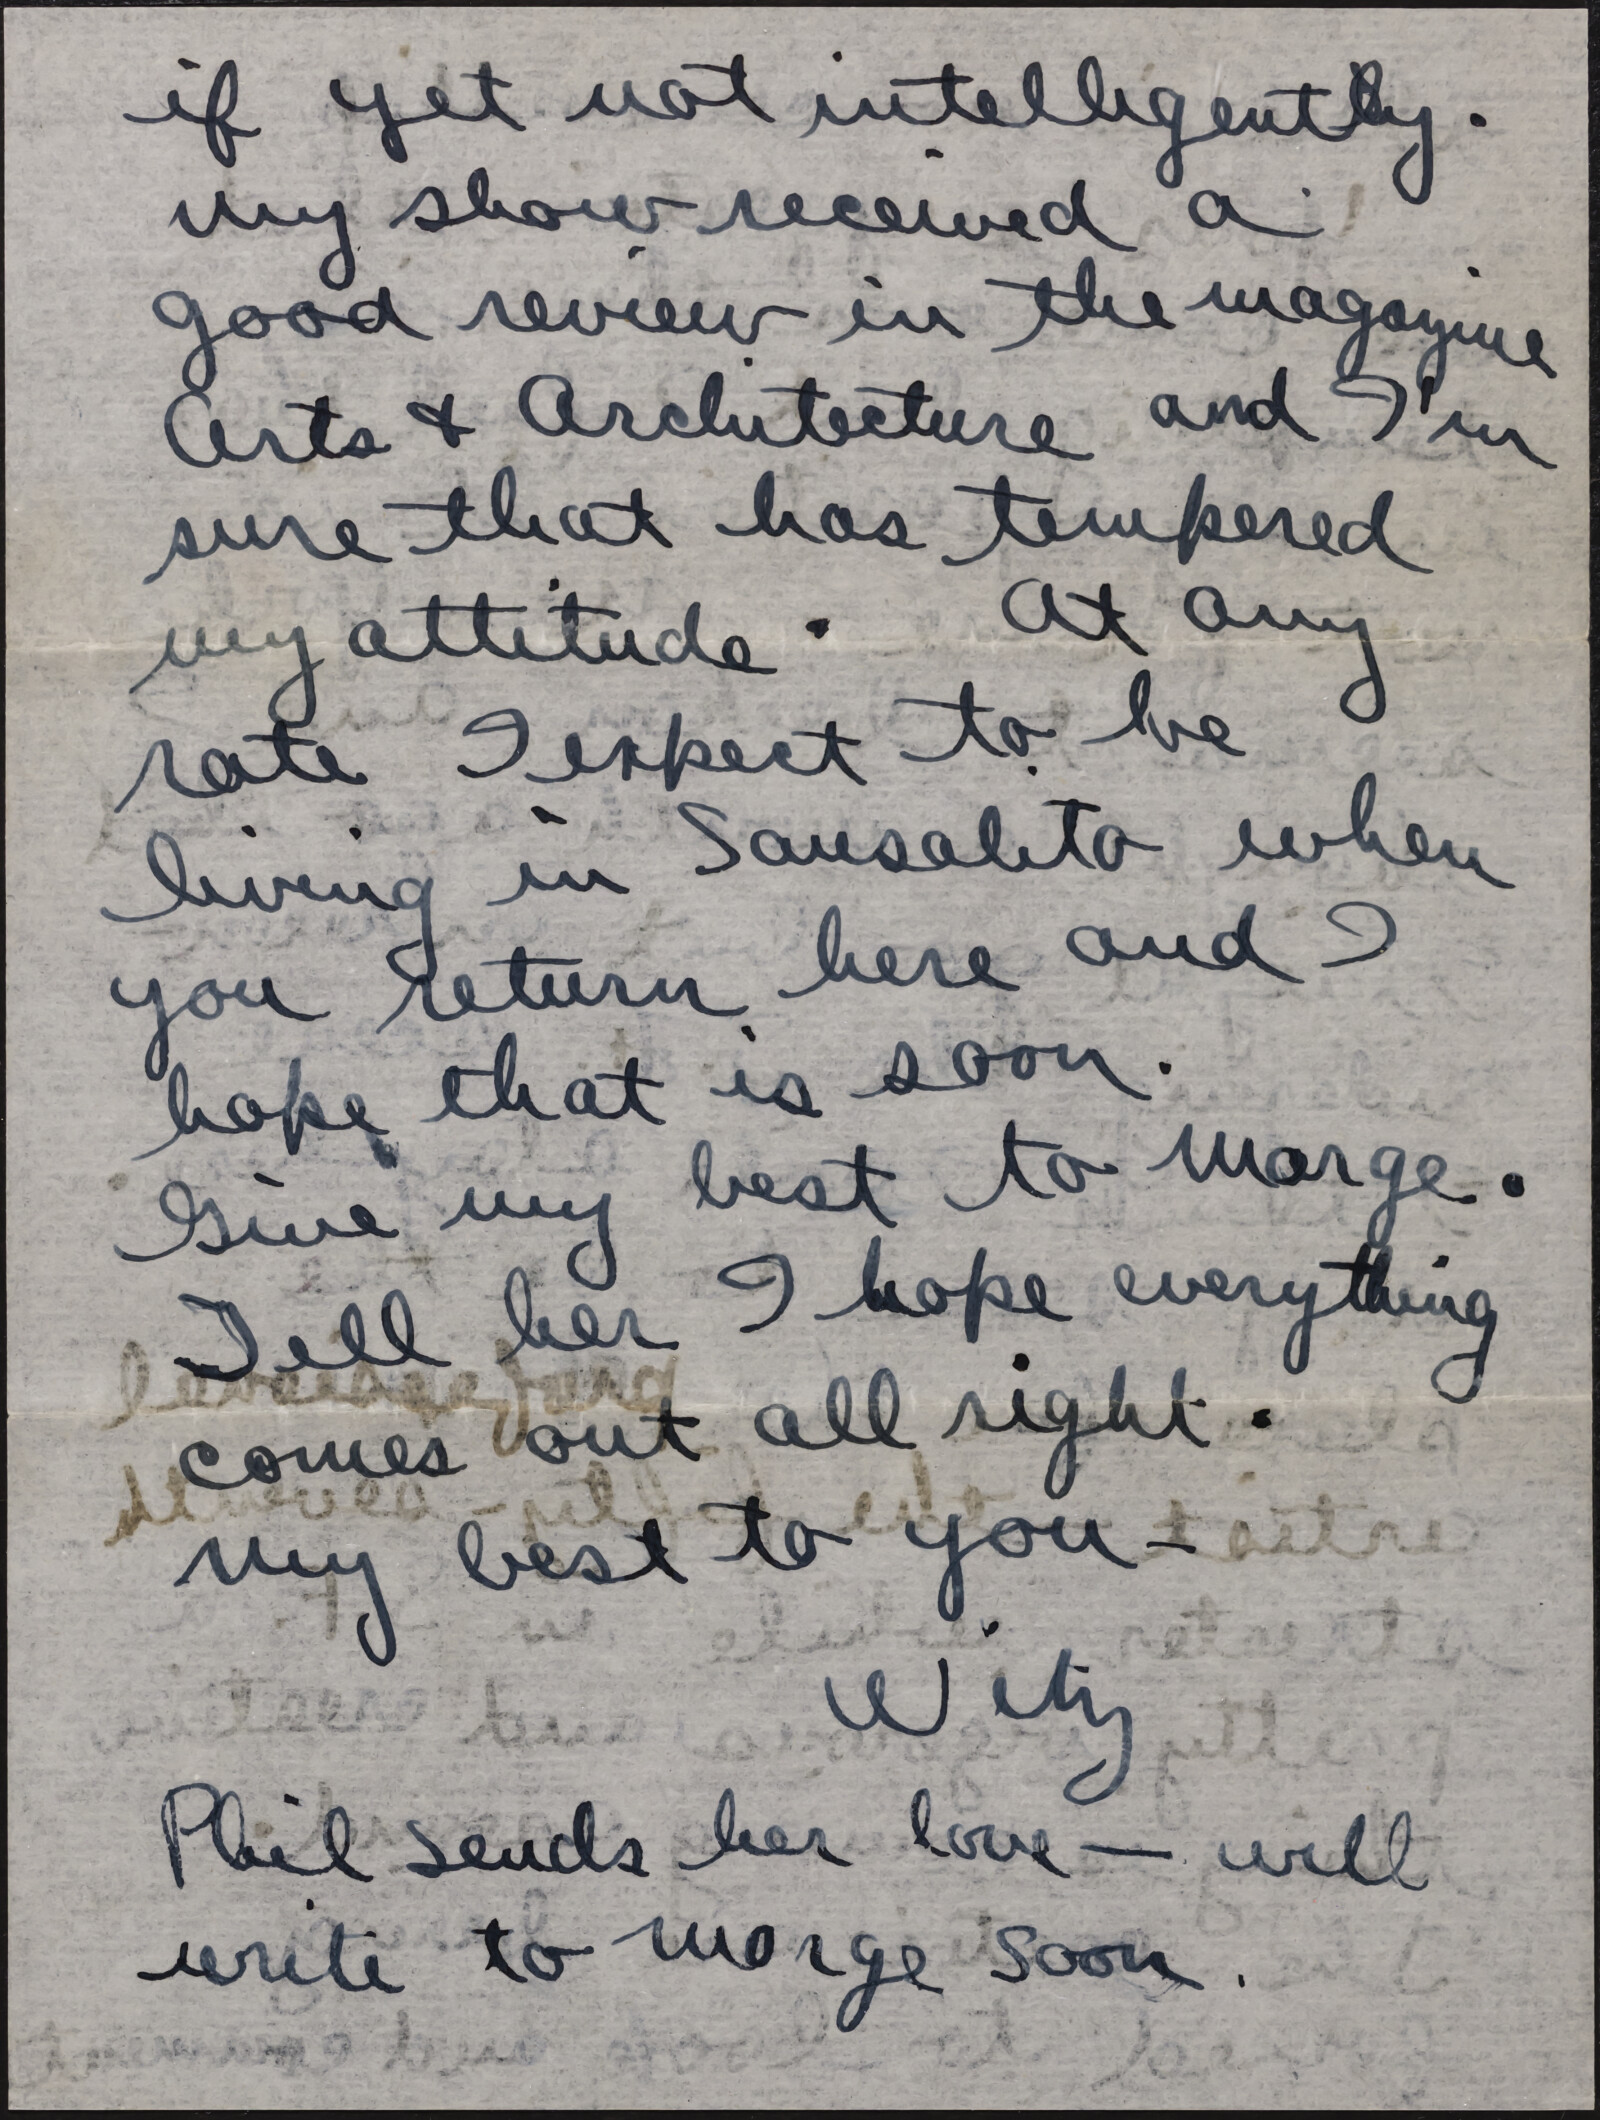 if yet not intelligently.
My show received a
good review in the magazine
Arts & Architecture and I'm
sure that has tempered
my attitude. At any
rate I expect to be
living in Sausalito when
you return here and I
hope that is soon.
Give my best to Marge.
Tell her I hope everything
comes out all right.
My best to you –
Witz
Phil sends her love — will
write to Marge soon.